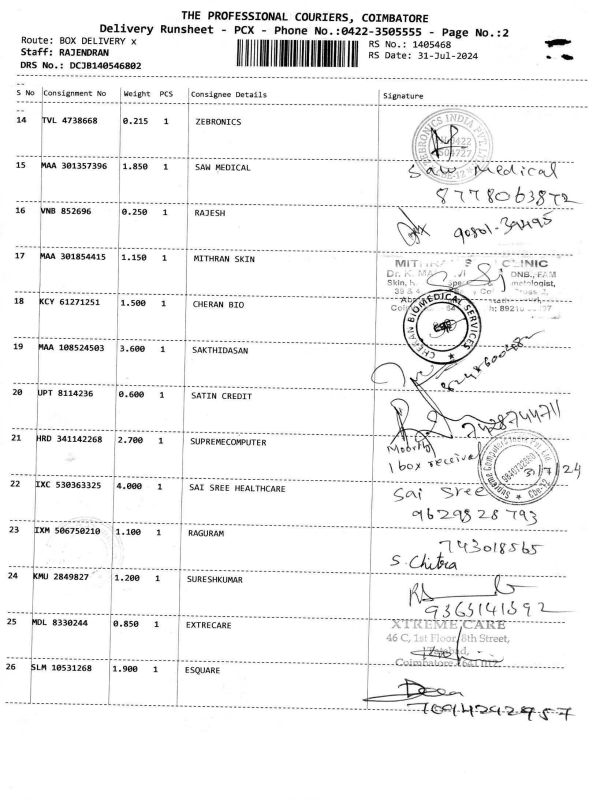 THE PROFESSIONAL COURIERS, COIMBATORE
Delivery Runsheet - PCX - Phone No.:0422-3505555 - Page No.:2
Route: BOX DELIVERY x
Staff: RAJENDRAN
DRS No.: DCJB140546802
RS No.: 1405468
RS Date: 31-Jul-2024
--
S No Consignment No Weight PCS Consignee Details Signature
--
14 TVL 4738668 0.215 1 ZEBRONICS
ZEBRONICS INDIA PVT.
15 MAA 301357396 1.850 1 SAW MEDICAL
Saw Medical
8778063872
16 VNB 852696 0.250 1 RAJESH
17 MAA 301854415 1.150 1 MITHRAN SKIN
CLINIC
Dr. K.
DNB.,FAM
18 KCY 61271251 1.500 1 CHERAN BIO
CHERAN BIOMEDICAL SERVICES
19 MAA 108524503 3.600 1 SAKTHIDASAN
20 UPT 8114236 0.600 1 SATIN CREDIT
21 HRD 341142268 2.700 1 SUPREMECOMPUTER
Moorthy
1 box received
31/7/24
22 IXC 530363325 4.000 1 SAI SREE HEALTHCARE
Sai Sree
9629828793
23 IXM 506750210 1.100 1 RAGURAM
743018565
S. Chitra
24 KMU 2849827 1.200 1 SURESHKUMAR
9365141592
25 MDL 8330244 0.850 1 EXTRECARE
XTREME CARE
46 C, 1st Floor, 8th Street,
Coimbatore
26 SLM 10531268 1.900 1 ESQUARE